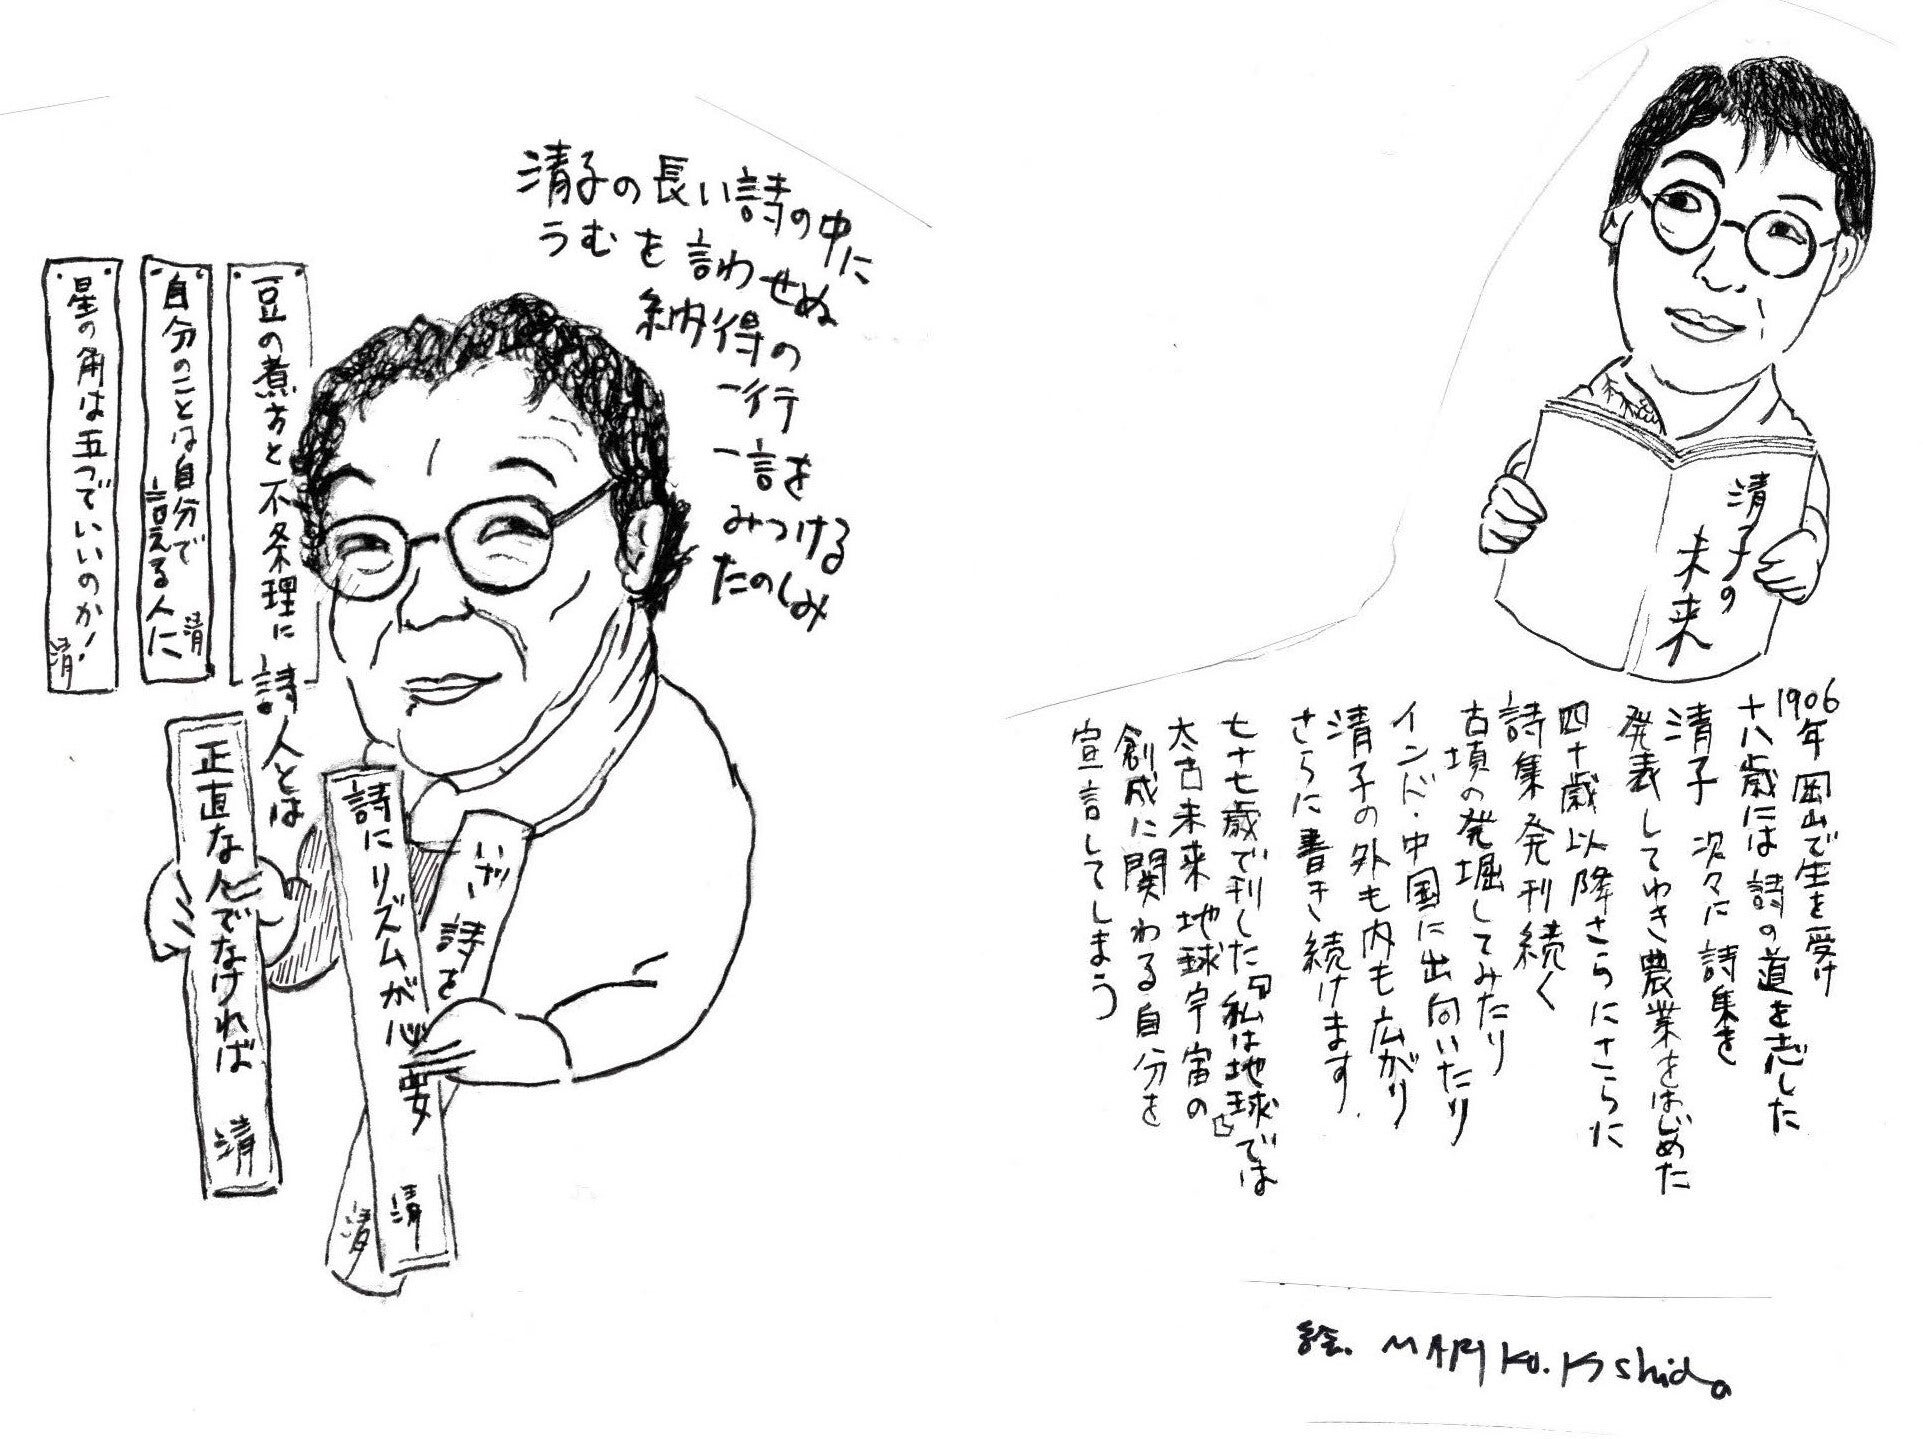 清子の未来
1906年岡山で生を受け
十八歳には詩の道を志した
清子 次々に詩集を
発表してゆき農業をはじめた
四十歳以降さらにさらに
詩集発刊続く
古墳の発掘してみたり
インド・中国に出向いたり
清子の外も内も広がり
さらに書き続けます.
七十七歳で刊した『私は地球』では
太古未来地球宇宙の
創成に関わる自分を
宣言してしまう
清子の長い詩の中に
うむを言わせぬ
納得の
一行
一言を
みつける
たのしみ
豆の煮方と不条理に
詩人とは
自分のことは自分で
言える人に 清
星の角は五つでいいのか! 清
いざ、詩を 清
詩にリズムが必要 清
正直な人でなければ 清
絵. MARIKO.Kishida